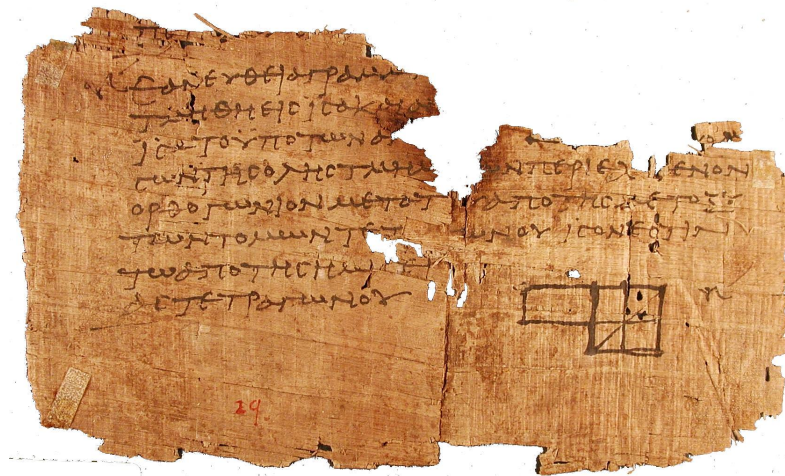 ΕΑΝ ΕΥΘΕΙΑ ΓΡΑΜ
ΤΜΗΘΗ ΕΙϹ ΙϹΑ ΚΑΙ Α
ΙϹΑ ΤΟ ΥΠΟ ΤΩΝ ΑΝ
ϹΩΝ ΤΗϹ ΟΛΗϹ ΤΜΗΜ ΩΝ ΠΕΡΙΕΧ ΜΕΝΟΝ
ΟΡΘΟΓΩΝΙΟΝ ΜΕΤΑ ΤΟΥ ΑΠΟ ΤΗϹ ΜΕΤΟΞΥ
ΤΩΝ ΤΟΜΩΝ ΤΕΤ ΩΝΟΥ ΙϹΟΝ ΕϹΤΙΝ
ΤΩ ΑΠΟ ΤΗϹ ΗΜΙϹΕΙ
ΑϹ ΤΕΤΡΑΓΩΝΟΥ
29